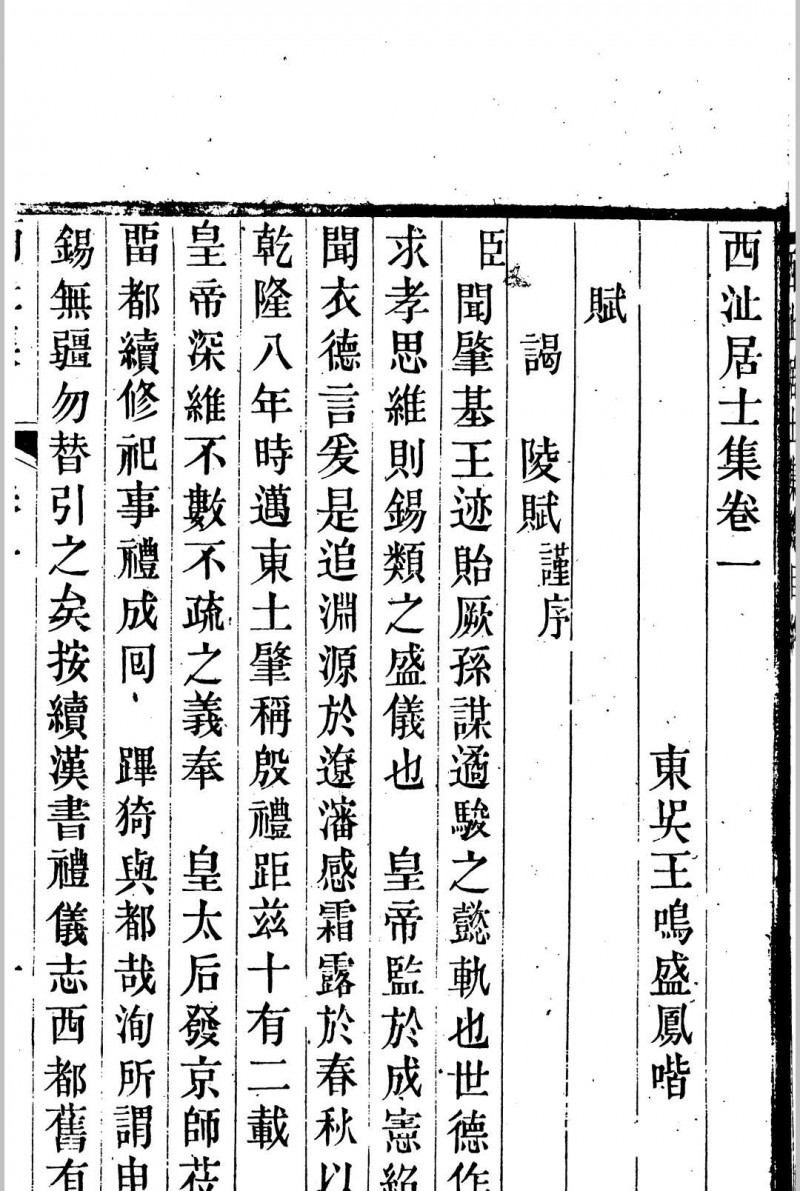 西沚居士集卷一
東吴王鳴盛鳳喈
賦
謁 陵賦謹序
臣聞肇基王迹貽厥孫謀遹駿之懿軌也世德作
求孝思維則錫類之盛儀也 皇帝監於成憲紹
聞衣德言爰是追淵源於遼瀋感霜露於春秋以
乾隆八年時邁東土肇稱殷禮距兹十有二載
皇帝深維不數不疏之義奉 皇太后發京師莅
畱都續修祀事禮成囘 蹕猗與都哉洵所謂申
錫無疆勿替引之矣按續漢書禮儀志西都舊有